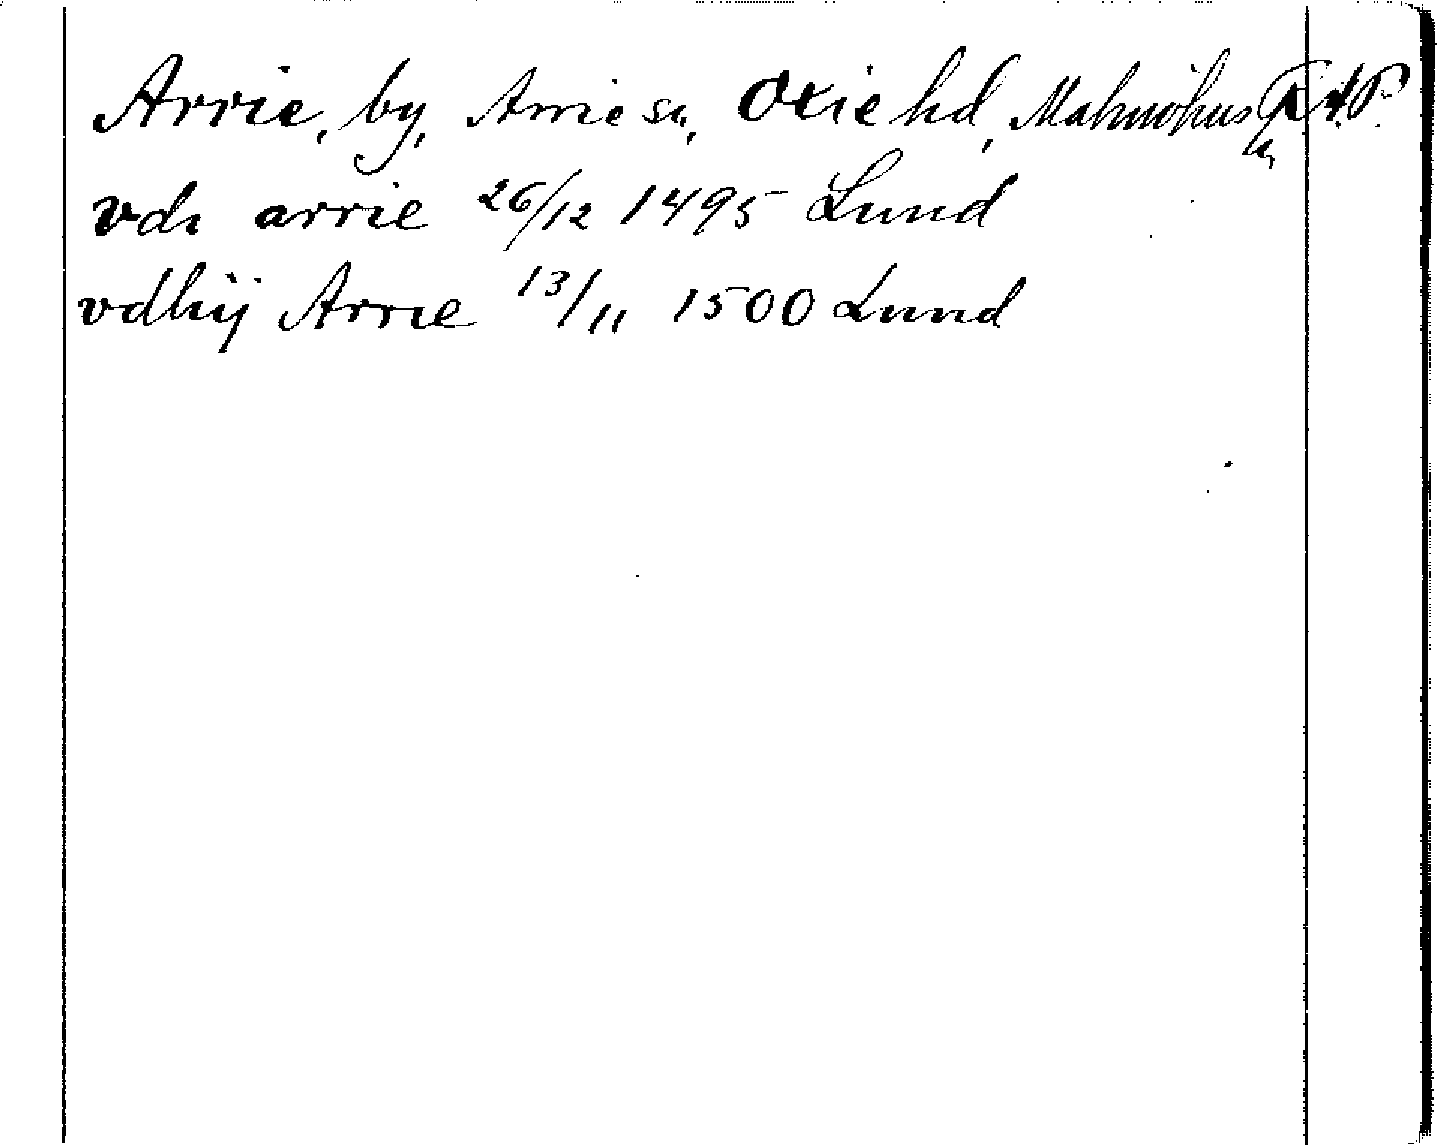 Arrie, by, Arrie sn, Oxie hd, Malmöhus
vdi arrie 26/12 1495 Lund
vdhij Arrie 13/11 1500 Lund